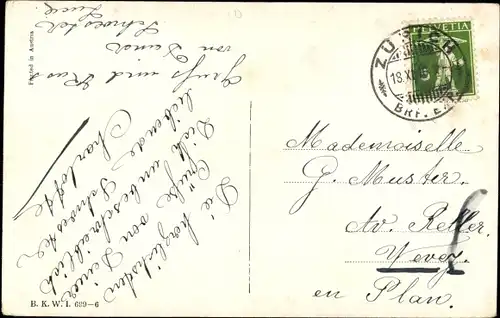 Printed in Austria
Gruss und Kuss
von Deiner
Schwester
Die herzlichsten
Grüße von Deiner
Dich unbeschreiblich
liebende Schwester
Charlotte
B. K. W. I. 689-6
HELVETIA
ZÜRICH
18.XI
BRF.
Mademoiselle
G. Muster.
Av. Reller.
Vevey
en Plan.